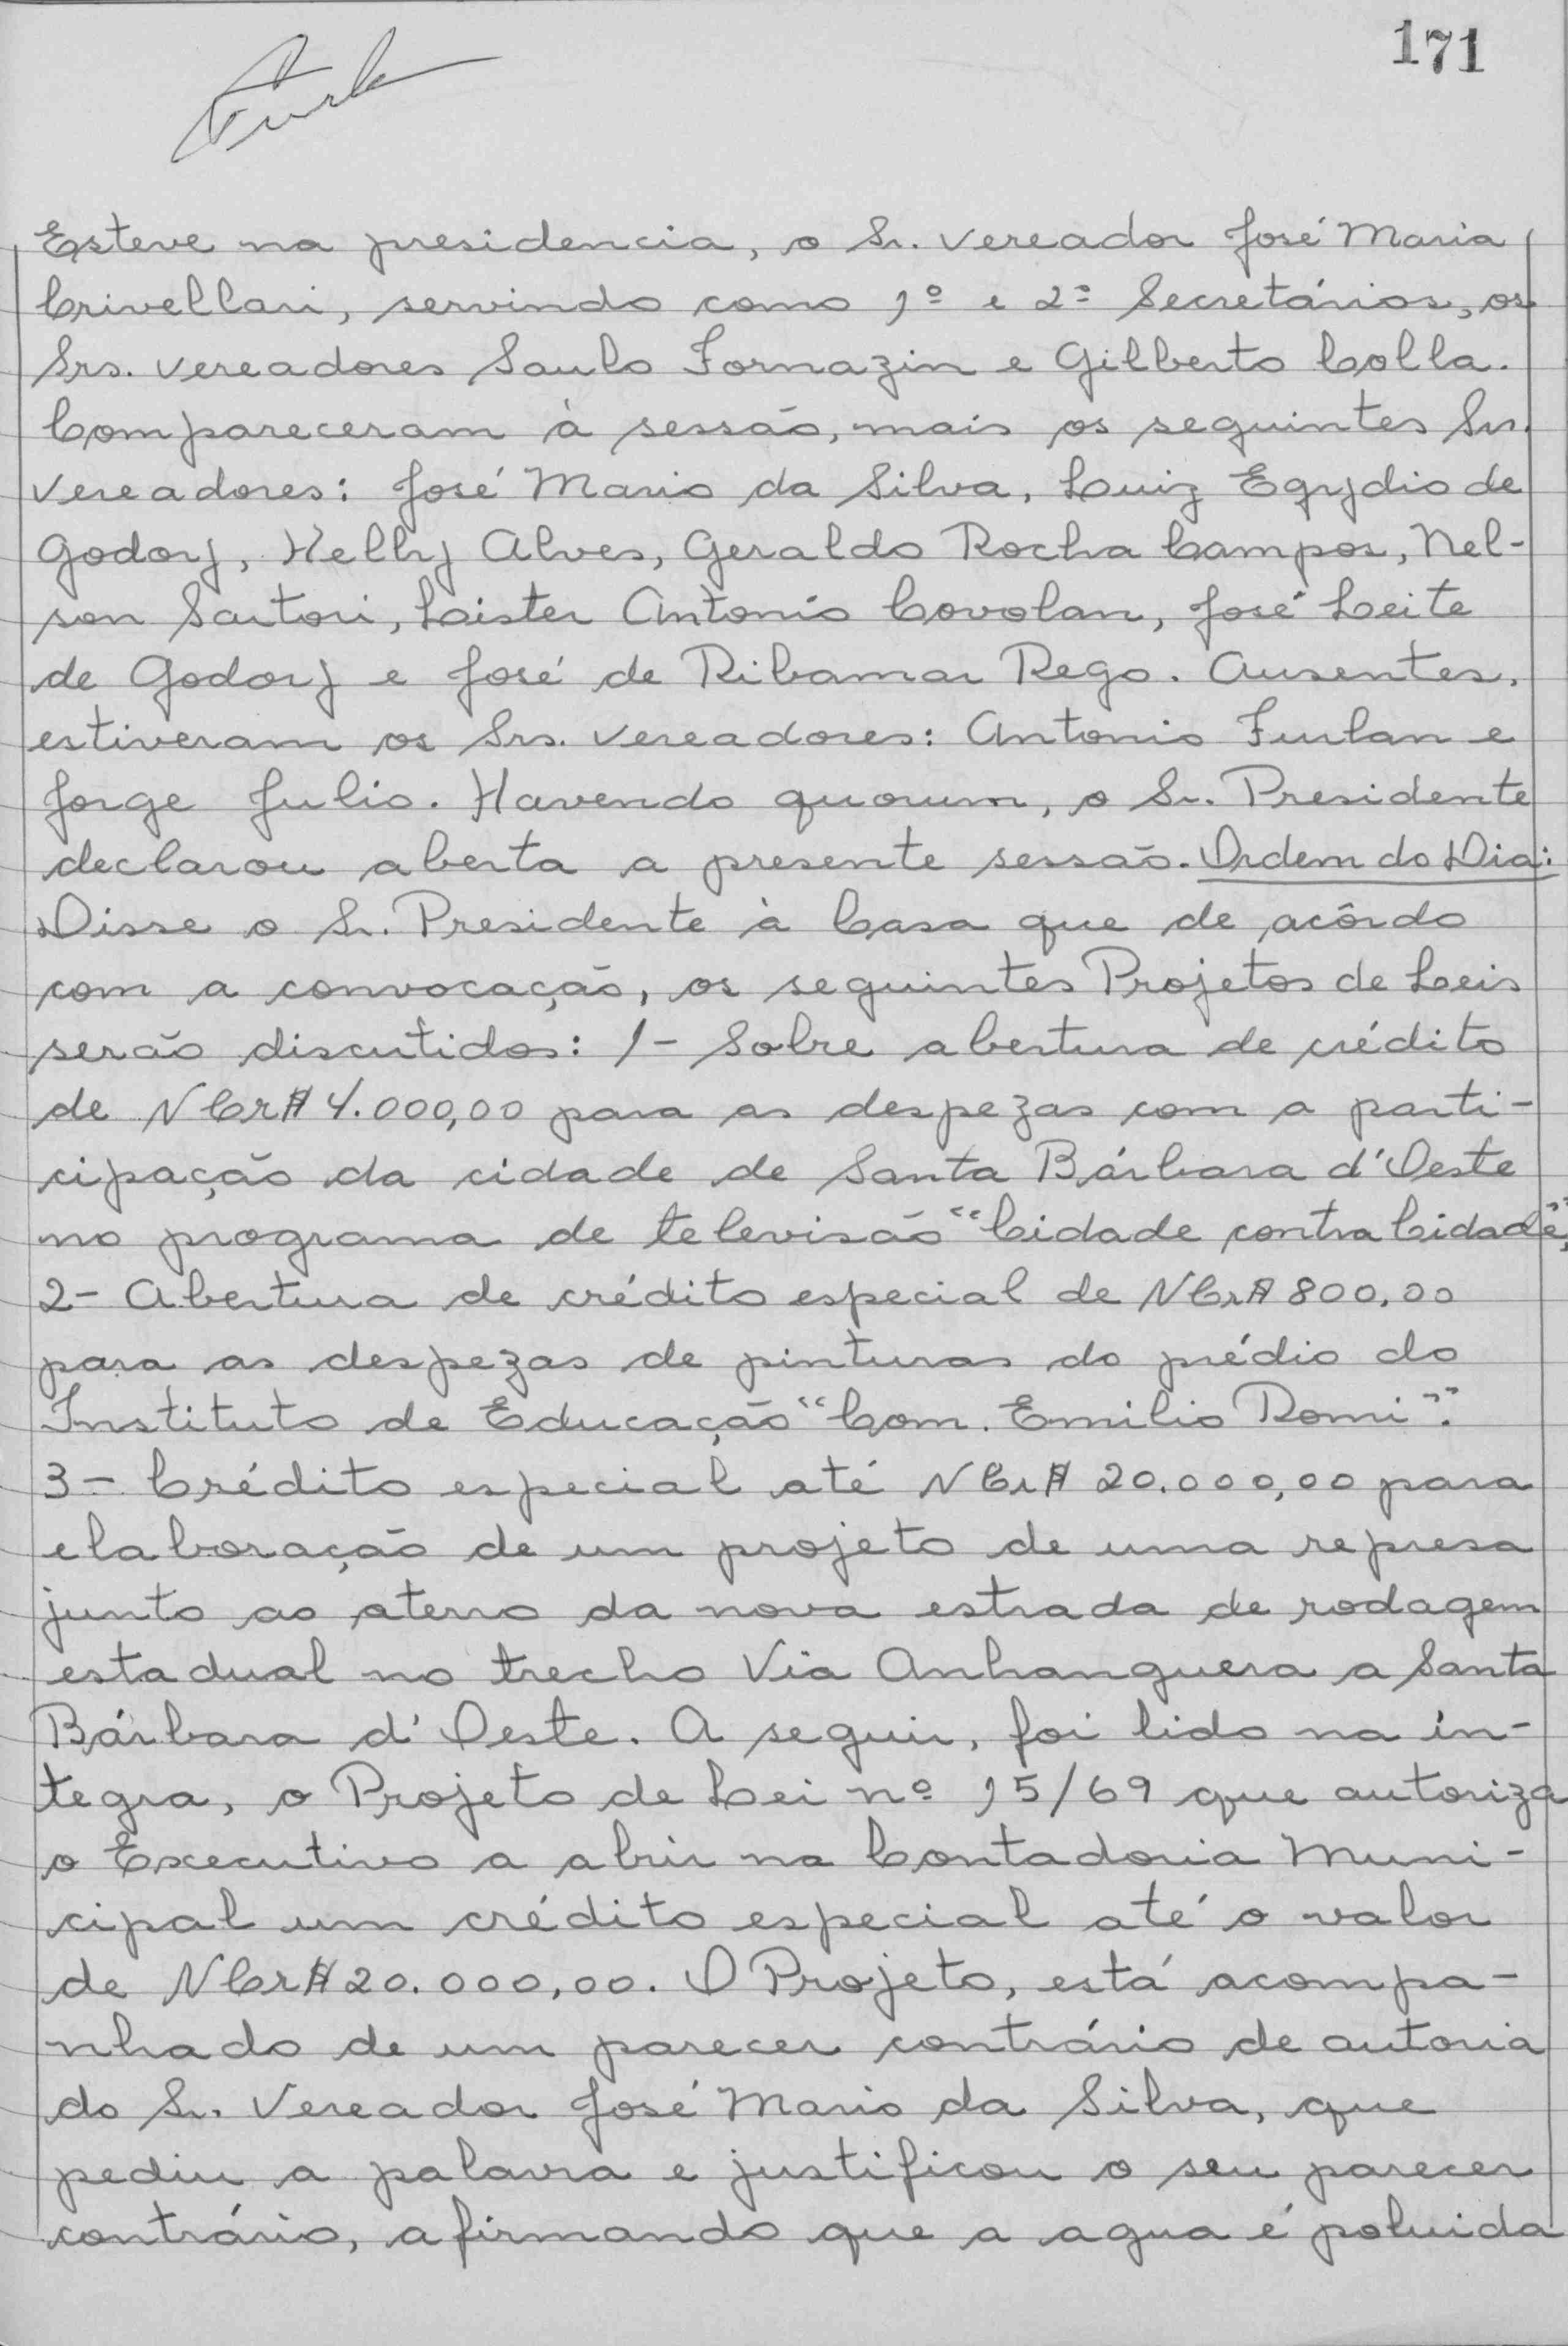 171
Esteve na presidencia, o Sr. vereador José Maria
Crivellari, servindo como 1º e 2º Secretários, os
Srs. vereadores Saulo Fornazin e Gilberto Colla.
Compareceram à sessão, mais os seguintes Srs.
vereadores: José Mario da Silva, Luiz Egydio de
Godoy, Kelly Alves, Geraldo Rocha Campos, Nel-
son Sartori, Lister Antonio Covolan, José Leite
de Godoy e José de Ribamar Rego. Ausentes,
estiveram os Srs. vereadores: Antonio Furlan e
Jorge Julio. Havendo quorum, o Sr. Presidente
declarou aberta a presente sessão. Ordem do Dia:
Disse o Sr. Presidente à Casa que de acôrdo
com a convocação, os seguintes Projetos de Leis
serão discutidos: 1- Sobre abertura de crédito
de NCr$ 4.000,00 para as despezas com a parti-
cipação da cidade de Santa Bárbara d'Oeste
no programa de televisão "Cidade contra Cidade",
2- Abertura de crédito especial de NCr$ 800,00
para as despezas de pinturas do prédio do
Instituto de Educação "Com. Emilio Romi".
3- Crédito especial até NCr$ 20.000,00 para
elaboração de um projeto de uma represa
junto ao aterro da nova estrada de rodagem
estadual no trecho Via Anhanguera a Santa
Bárbara d'Oeste. A seguir, foi lido na ín-
tegra, o Projeto de Lei nº 15/69 que autoriza
o Executivo a abrir na Contadoria Muni-
cipal um crédito especial até o valor
de NCr$ 20.000,00. O Projeto, está acompa-
nhado de um parecer contrário de autoria
do Sr. Vereador José Mario da Silva, que
pediu a palavra e justificou o seu parecer
contrário, afirmando que a agua é poluida